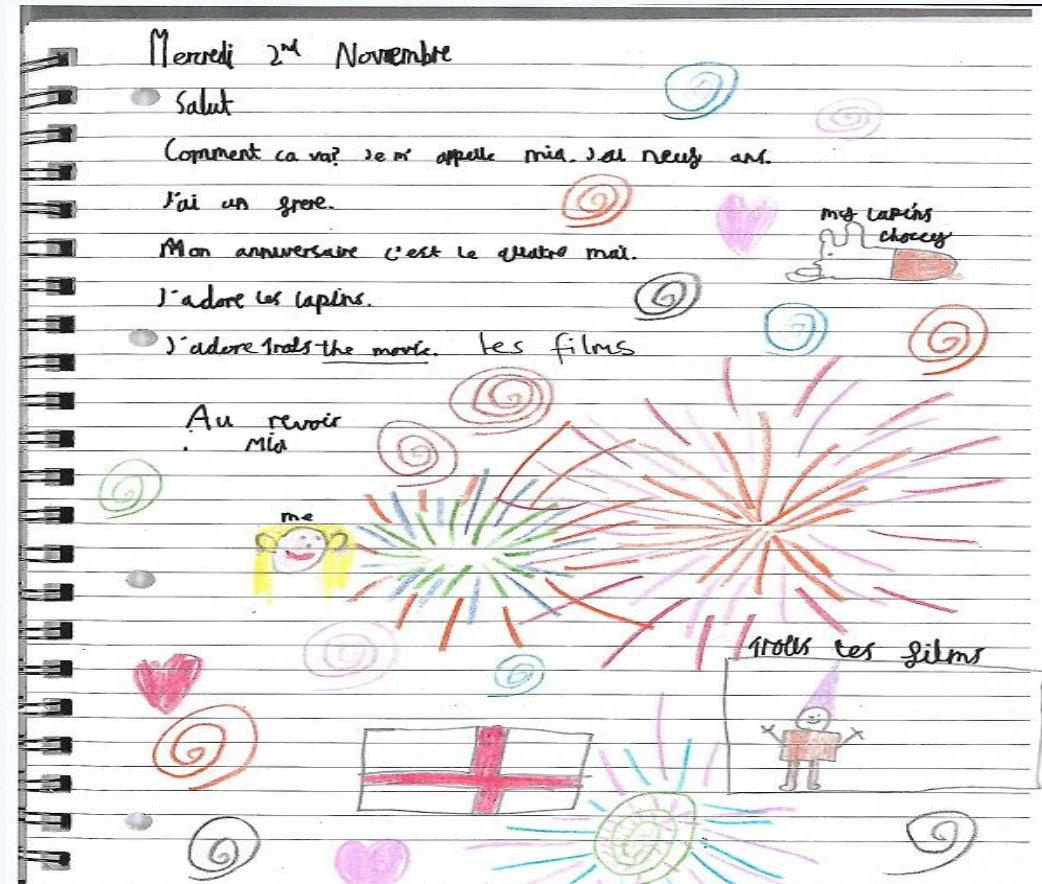 Mercredi 2nd Novembre
Salut
Comment ca va? Je m'appelle mia. J'ai neuf ans.
J'ai un frere.
my Lapins
choccy
Mon anniversaire c'est le quatre mai.
J'adore les lapins.
J'adore trolls the movie. les films
Au revoir
Mia
me
trolls les films